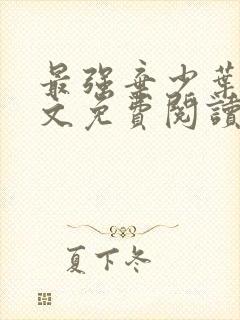 最强弃少葉
文免費閱讀
夏下冬